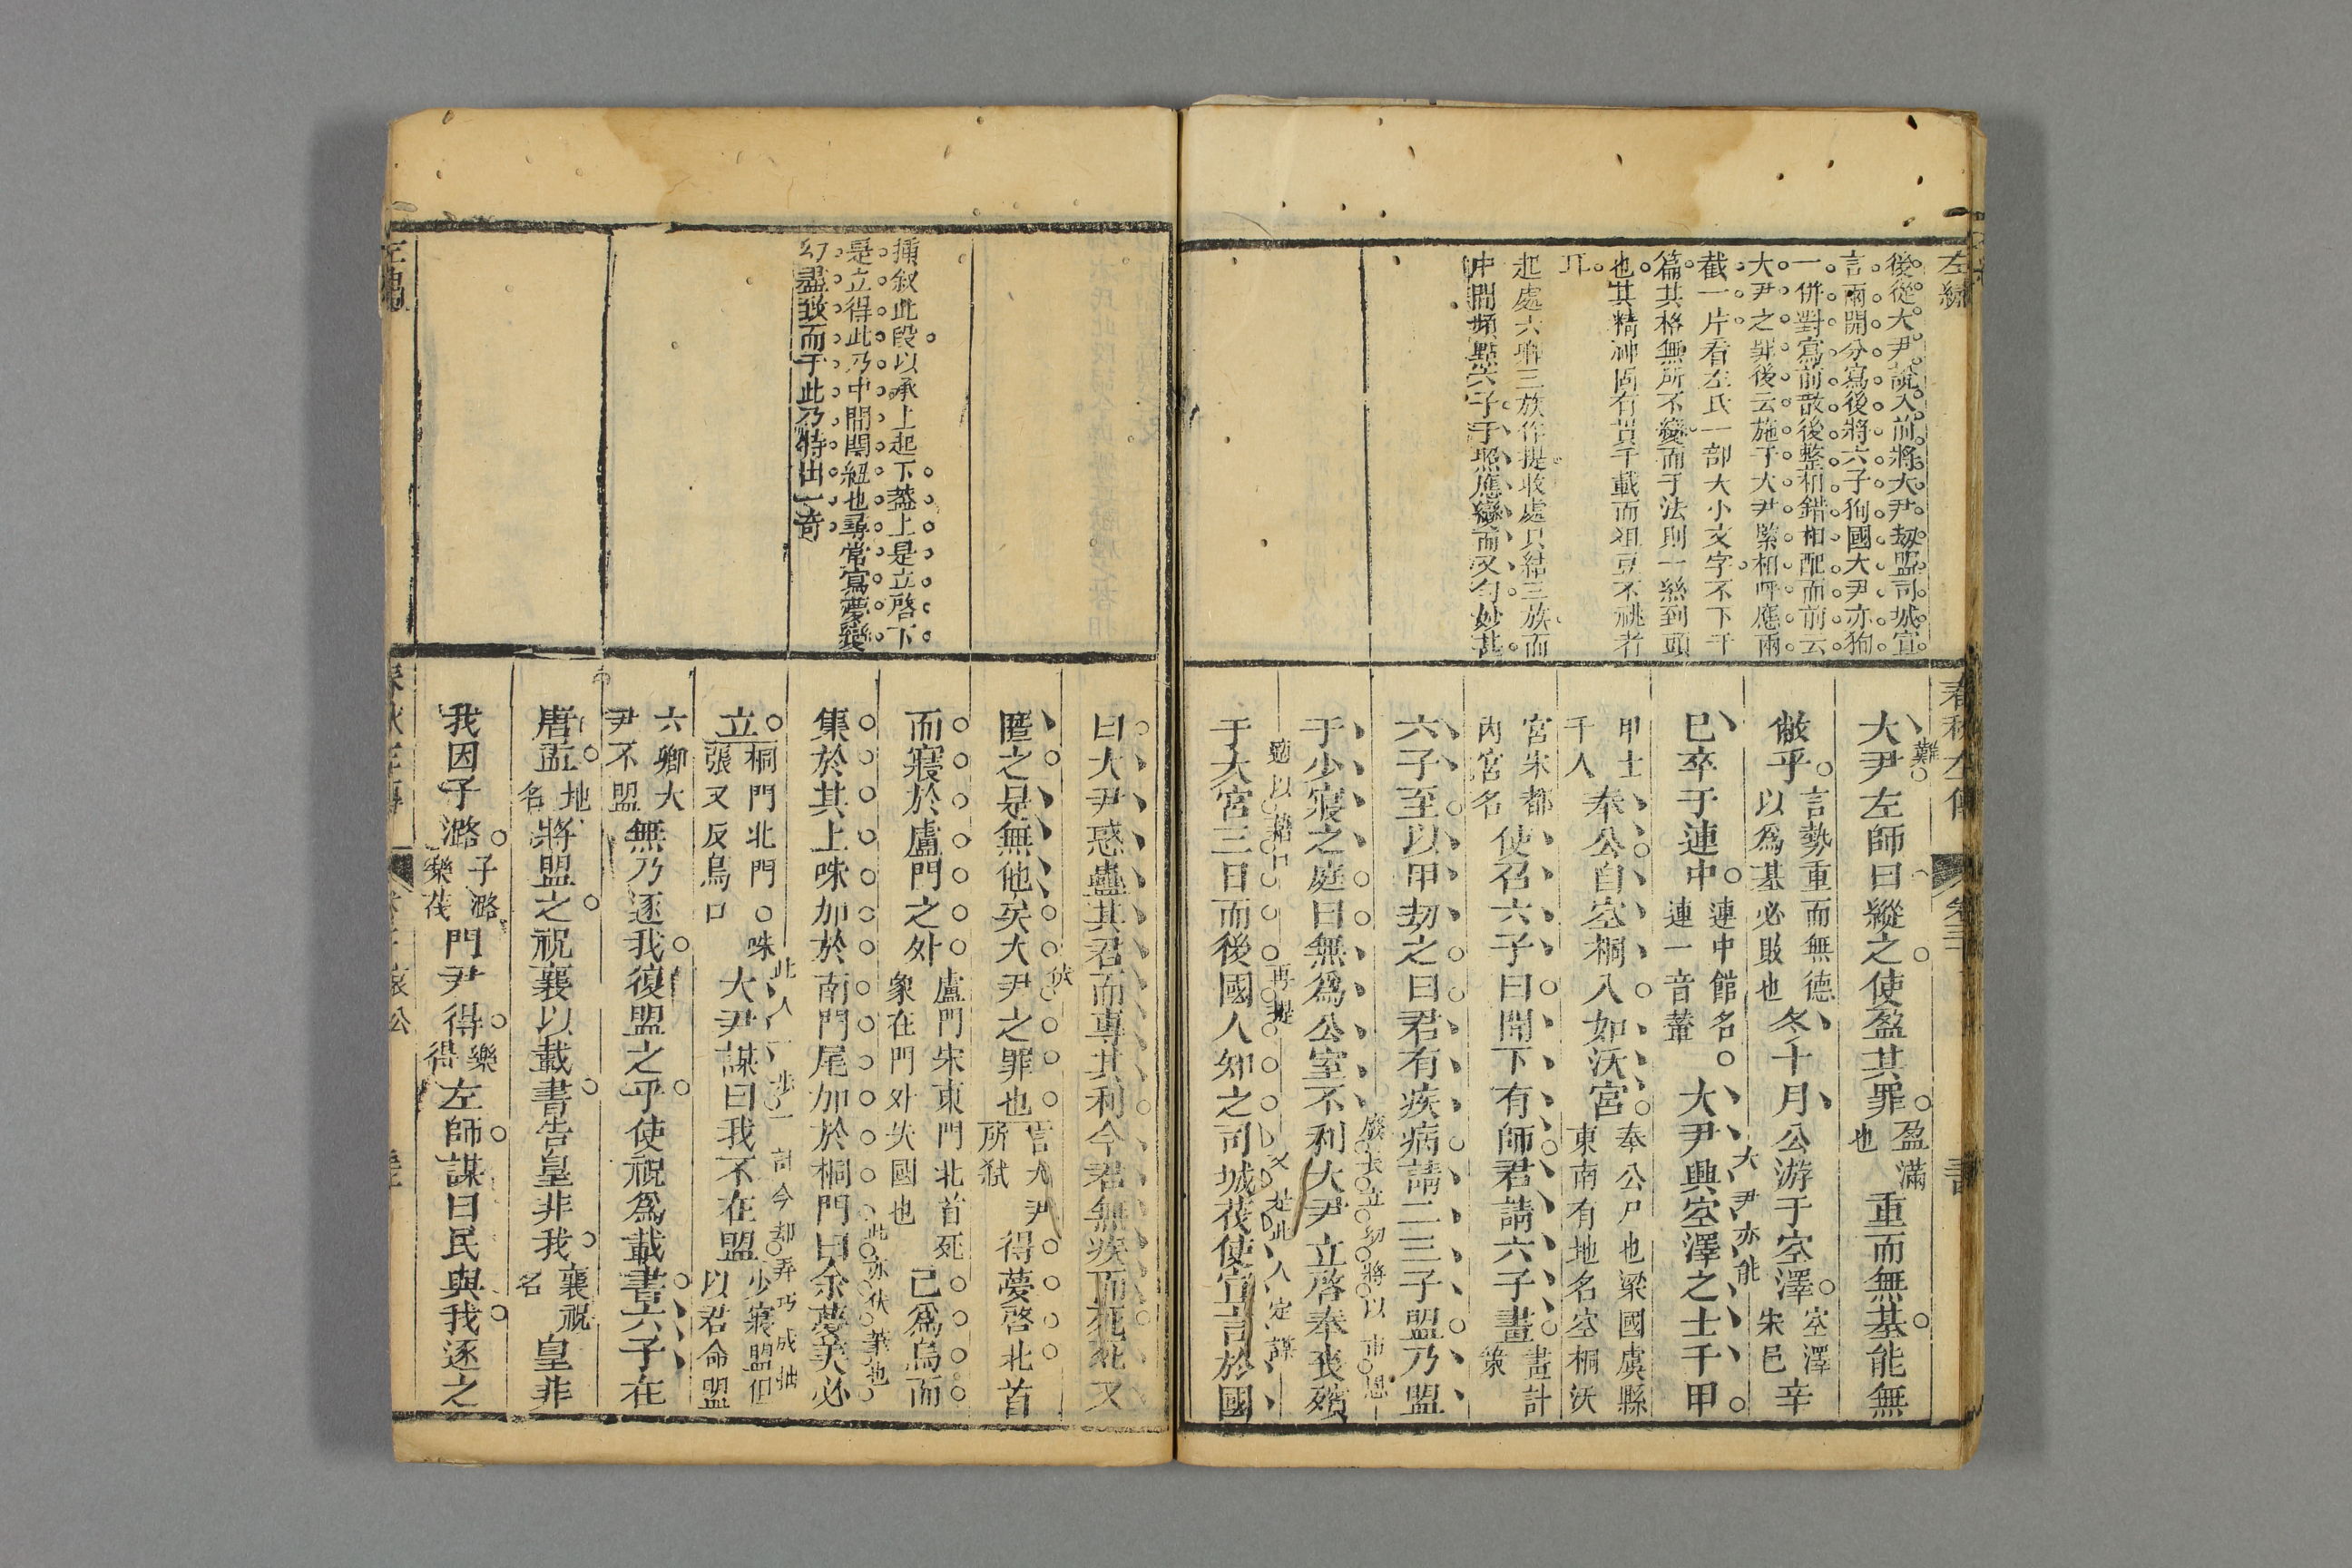 左繡
後從大尹說入前將大尹劫盟司城宣
言兩開分寫後將六子狥國大尹亦狥
一併對寫前散後整相錯相配而前云
大尹之罪後云施于大尹緊相呼應兩
截一片看左氏一部大小文字不下千
篇其格無所不變而于法則一絲到頭
也其精神固有貫千載而俎豆不祧者
耳
起處六卿三族作提收處只結三族而
中間頻點六子于照應變而又勻妙甚
春秋左傳
大尹左師曰縱之使盈其罪
盈滿
也
重而無基能無
難
敝乎
言勢重而無德
以爲基必敗也
冬十月公游于空澤
空澤
宋邑
辛
巳卒于連中
連中館名
連一音輦
大尹興空澤之士千甲
大尹亦能
甲士
千人
奉公自空桐入如沃宮
奉公尸也梁國虞縣
東南有地名空桐沃
宮宋都
內宮名
使召六子曰聞下有師君請六子畫
畫計
策
六子至以甲劫之曰君有疾病請二三子盟乃盟
于少寢之庭曰無爲公室不利大尹立啓奉喪殯
于大宮三日而後國人知之司城茷使宣言於國
曰大尹惑蠱其君而專其利今君無疾而死死又
匿之是無他矣大尹之罪也
言大尹
所弑
得夢啓北首
伏
而寢於盧門之外
盧門宋東門北首死
象在門外失國也
己爲烏而
集於其上咮加於南門尾加於桐門曰余夢美必
此亦伏筆也
立
桐門北門
咮
張又反鳥口
大尹謀曰我不在盟
少寢盟但
以君命盟
六卿大
尹不盟
無乃逐我復盟之乎使祝爲載書六子在
唐盂
地
名
將盟之祝襄以載書告皇非我
襄祝
名
皇非
我因子潞
子潞
樂茷
門尹得
樂
得
左師謀曰民與我逐之
插敘此段以承上起下蓋上是立啓下
是立得此乃中間關紐也尋常寫夢變
幻盡致而于此乃特出一奇